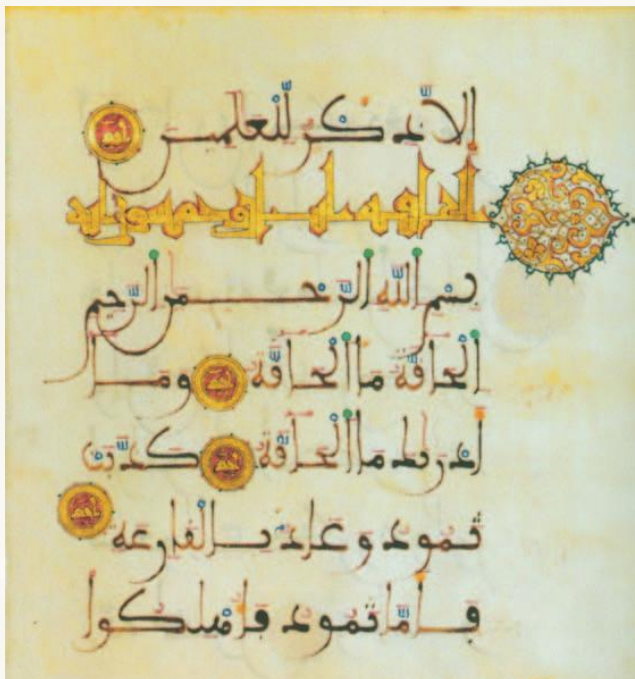 إلا ذكر للعلمين
الحاقة
بسم الله الرحمن الرحيم
الحاقة ما الحاقة وما
أدريك ما الحاقة كذبت
ثمود وعاد بالقارعة
فأما ثمود فأهلكوا